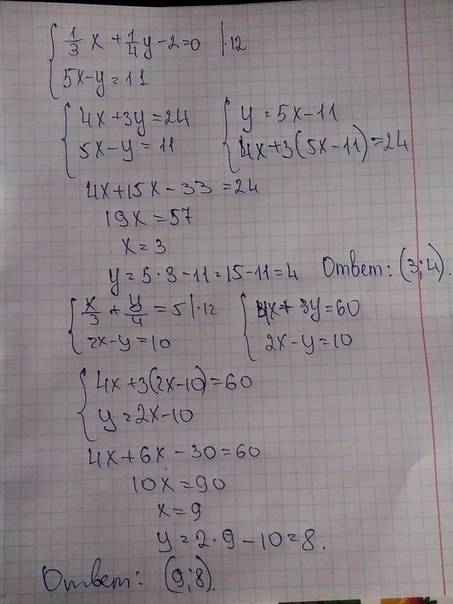 { 1/3 x + 1/4 y - 2 = 0 | · 12
5x - y = 11
{ 4x + 3y = 24 { y = 5x - 11
5x - y = 11 4x + 3(5x - 11) = 24
4x + 15x - 33 = 24
19x = 57
x = 3
y = 5 · 3 - 11 = 15 - 11 = 4 Ответ: (3; 4).
{ x/3 + y/4 = 5 | · 12 { 4x + 3y = 60
2x - y = 10 2x - y = 10
{ 4x + 3(2x - 10) = 60
y = 2x - 10
4x + 6x - 30 = 60
10x = 90
x = 9
y = 2 · 9 - 10 = 8.
Ответ: (9; 8).